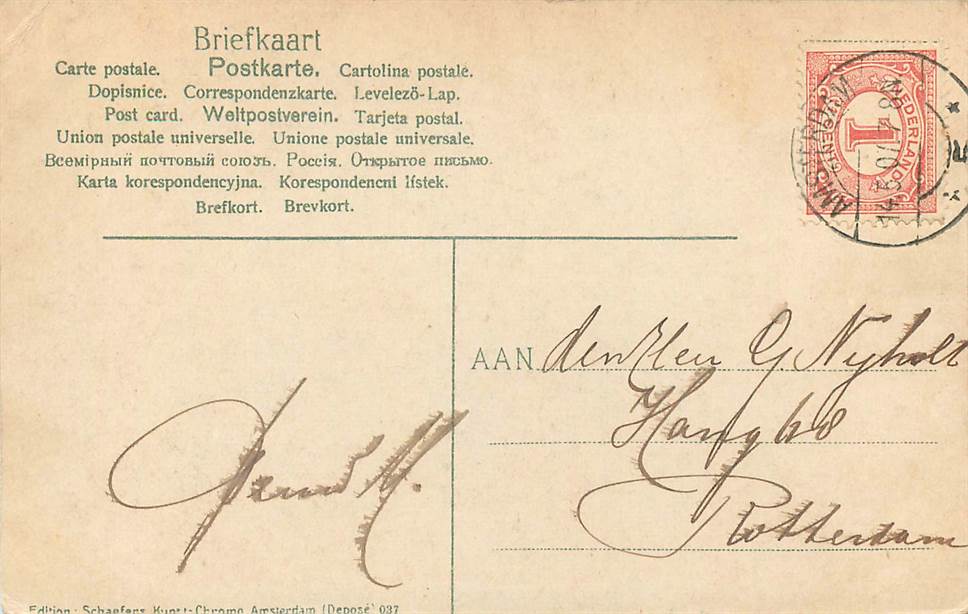 Briefkaart
Carte postale. Postkarte. Cartolina postale.
Dopisnice. Correspondenzkarte. Levelező-Lap.
Post card. Weltpostverein. Tarjeta postal.
Union postale universelle. Unione postale universale.
Всемірный почтовый союзъ. Россія. Открытое письмо.
Karta korespondencyjna. Korespondencni lístek.
Brefkort. Brevkort.
NEDERLAND
1
AMSTERDAM
AAN den Heer G Nyholt
Hang 68
Rotterdam
Edition: Schaefers Kunst-Chromo Amsterdam (Deposé) 037